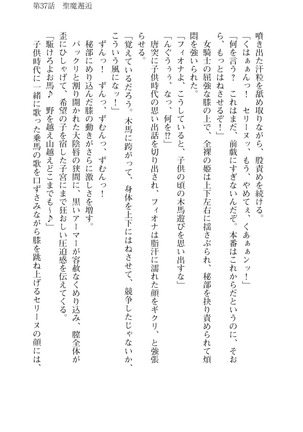 第37話　聖魔邂逅
噴き出た汗粒を舐め取りながら、股責めを続ける。
「くはぁぁんっ！　セリーヌッ、もう、やめてぇ、くあぁぁンッ！」
「何を言う？　これはまだ、前戯にすぎないんだぞ。本番はこれからだというのに、そお
ら、もっとはねさせるぞ！」
女騎士の屈強な膝の上で、全裸の姫は上下左右に揺さぶられ、秘部を抉り責められて煩
悶を強いられる。
「フィオナよ、こうしていると、子供の頃の木馬遊びを思い出すな」
「んぐうぅぅっ！　なっ、何を⁉」
唐突に子供時代の思い出話を切り出され、フィオナは脂汗に濡れた顔をギクリ、と強張
らせる。
「覚えているだろう。木馬に跨がって、身体を上下にはねさせて、競争したじゃないか、
こういう風になっ！」
ずんっ！　ずんっ、ずむんっ、ずっむんっ！
秘部にめり込んだ膝の動きがさらに激しさを増す。
パックリと割り開かれた大陰唇の狭間に、黒いアーマーが容赦なくめり込み、膣全体が
歪にひしゃげて、希望の子を宿した子宮にまで狂おしい圧迫感を伝えてくる。
「駆けろよお馬♪　野を越え山越えどこまでも～♪」
子供時代に一緒に歌った乗馬の歌を口ずさみながら膝を跳ね上げるセリーヌの顔には、